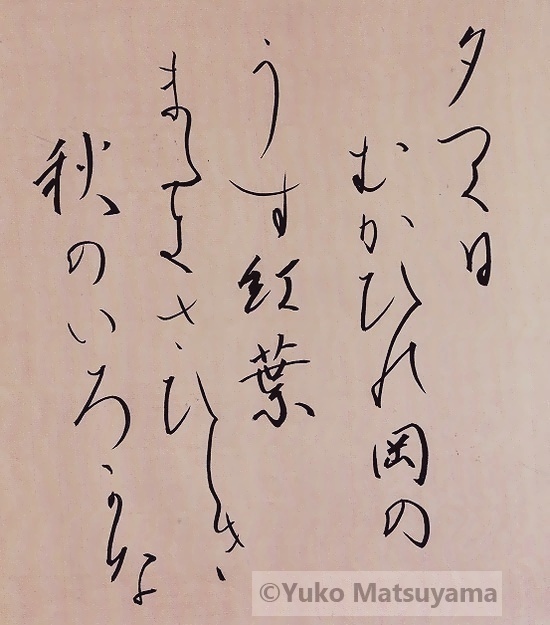 夕つく日
むかひの岡の
うす紅葉
またきさひしき
秋のいろかな
©Yuko Matsuyama